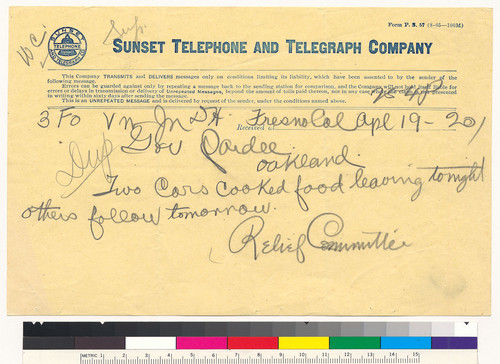 Form P. S. 37 (8-05-100M)
Sup.
SUNSET
TELEPHONE
SUNSET TELEPHONE AND TELEGRAPH COMPANY
This Company TRANSMITS and DELIVERS messages only on conditions limiting its liability, which have been assented to by the sender of the
following message.
Errors can be guarded against only by repeating a message back to the sending station for comparison, and the Company will not hold itself liable for
errors or delays in transmission or delivery of Unrepeated Messages, beyond the amount of tolls paid thereon, nor in any case where the claim is not presented
in writing within sixty days after sending the message.
This is an UNREPEATED MESSAGE and is delivered by request of the sender, under the conditions named above.
3 Fo Vn Jn DH. Fresno Cal Apl 19-
Received at
Dup
Gov Pardee
Oakland.
Two Cars cooked food leaving tonight
others follow tomorrow.
Relief Committee
METRIC 1 2 3 4 5 6 7 8 9 10 11 12 13 14 15